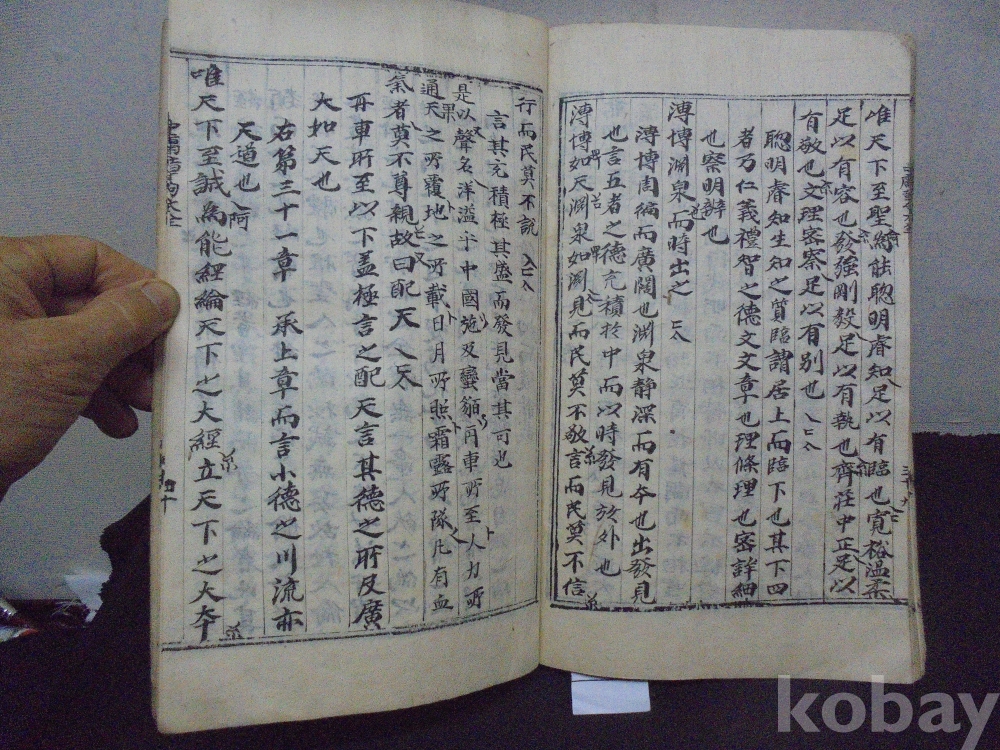 唯天下至聖爲能聰明睿知足以有臨也寬裕溫柔
足以有容也發强剛毅足以有執也齊莊中正足以
有敬也文理密察足以有別也
聰明睿知生知之質臨謂居上而臨下也其下四
者乃仁義禮智之德文文章也理條理也密詳細
也察明辨也
溥博淵泉而時出之
溥博周徧而廣闊也淵泉靜深而有本也出發見
也言五者之德充積於中而以時發見於外也
溥博如天淵泉如淵見而民莫不敬言而民莫不信
行而民莫不說
言其充積極其盛而發見當其可也
是以聲名洋溢乎中國施及蠻貊舟車所至人力所
通天之所覆地之所載日月所照霜露所隊凡有血
氣者莫不尊親故曰配天
舟車所至以下盖極言之配天言其德之所及廣
大如天也
右第三十一章承上章而言小德之川流亦
天道也
唯天下至誠為能經綸天下之大經立天下之大本
kobay